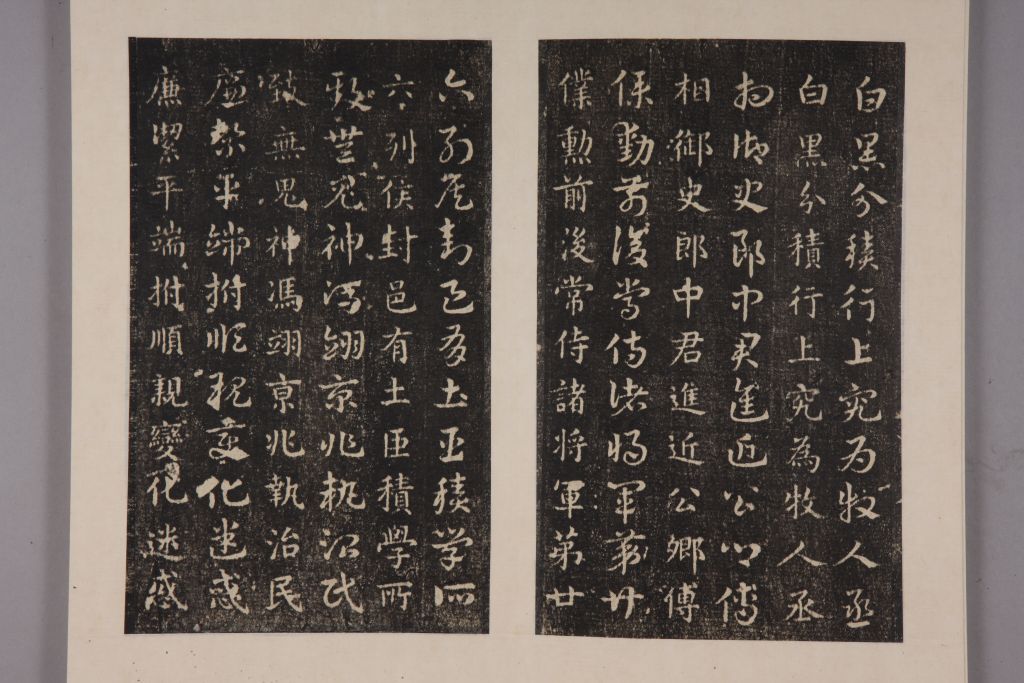 白黑分積行上究為牧人丞
白黑分積行上究為牧人丞
相御史郎中君進近公卿傅
相御史郎中君進近公卿傅
僕勳前後常侍諸将軍第廿
僕勳前後常侍諸将軍第廿
六列侯封邑有土臣積學所
六列侯封邑有土臣積學所
致無鬼神馮翊京兆執治民
致無鬼神馮翊亰兆執治民
廉絜平端拊順親變化迷惑
廉絜平端拊順親變化迷惑